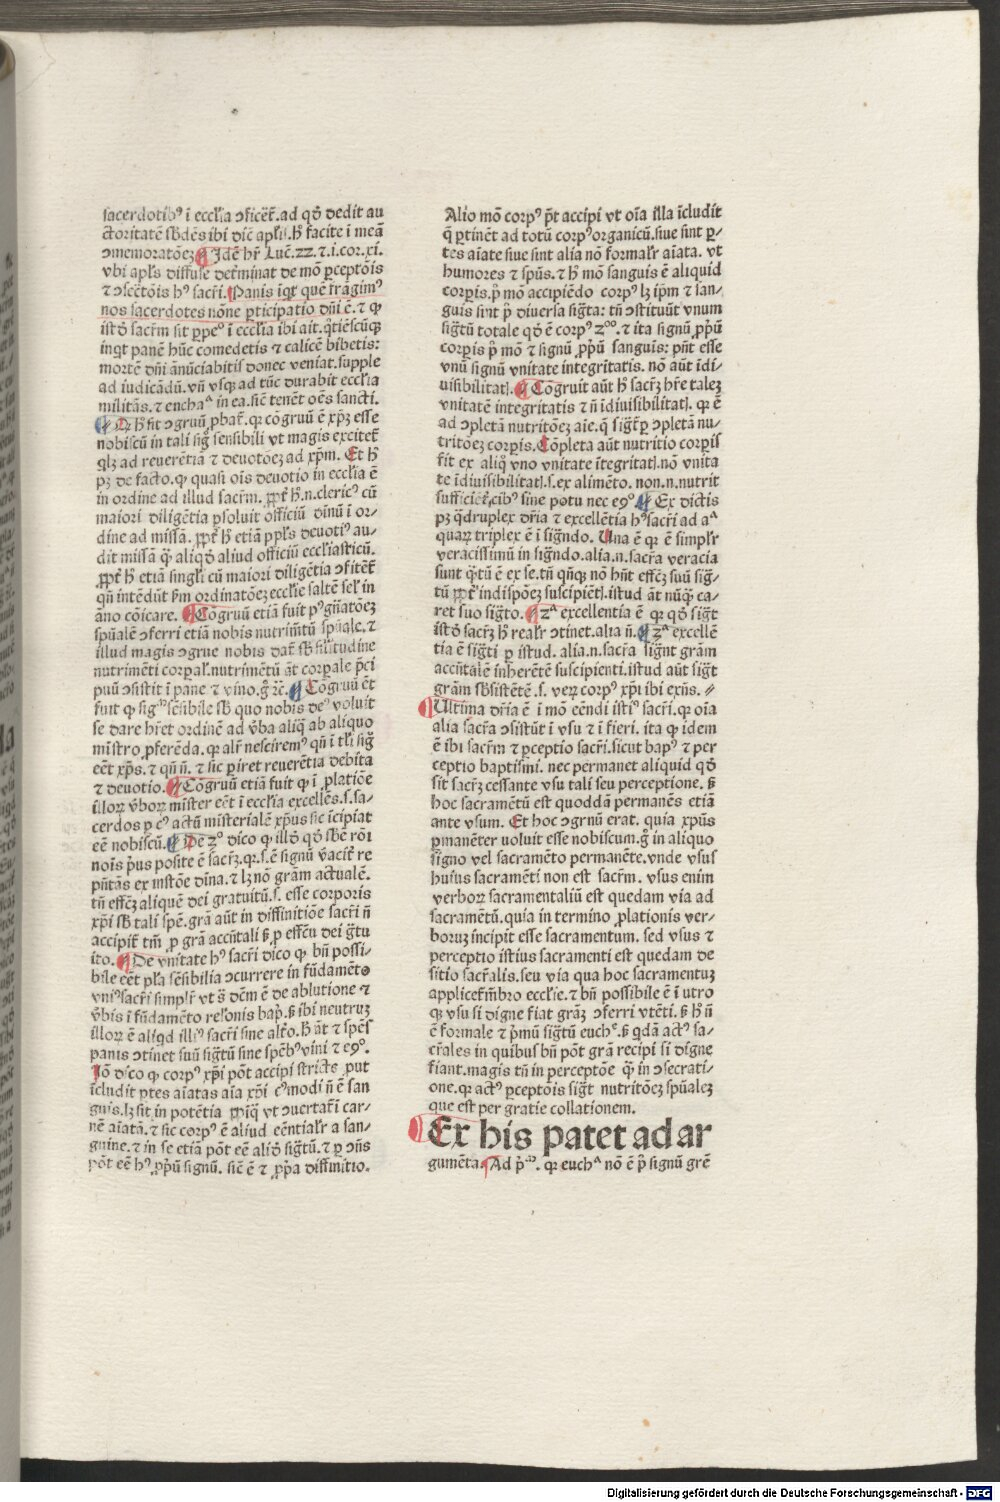 sacerdotibꝰ ī ecclīa ɔficēt̄.ad qd̄ dedit au
ctoritatē sb̄dēs ibi dīc̄ apl̄is.h̄ facite ī meā
ɔmemoratōeꝫ ¶ Idē hr̄ Luc̄.22.⁊.i.cor.xi.
vbi apl̄s diffuse det̄minat de mō ꝑceptōis
⁊ ɔsec̄tōis hꝰ sacr̄i.Panis iḡt̄ quē frāgimꝰ
nos sacerdotes nōne ꝑticipatio dn̄i ē.⁊ ꝙ
istd̄ sacr̄m sit ꝑpeᵒ ī ecclīa ibi ait.q̄tiēscūqꝫ
inqt panē hūc comedetis ⁊ calicē bibetis:
mortē dn̄i ānūciabitis donec veniat.supple
ad iudicādū.vn̄ vsqꝫ ad tūc durabit ecclīa
militās.⁊ enchaᵃ in ea.sic̄ tenēt oēs sancti.
¶ Qꝫ h̄ fit ɔgruū ꝓbat̄.qꝛ cōgruū ē xp̄ꝫ esse
nobiscū in tali sig̊ sensibili vt magis excitet̄
qlꝫ ad reuerētiā ⁊ deuotōeꝫ ad xp̄m. Et h̄
pꝫ de facto.ꝙ quasi oīs deuotio in ecclīa ē
in ordine ad illud sacr̄m. ꝓpt̄ h̄.n.clericꝰ cū
maiori diligētia ꝑsoluit officiū diuīnū ī or⸗
dine ad missā. ꝓpt̄ h̄ etiā ppl̄s deuotiꝰ au⸗
dit missā q̄ꝫ aliqd̄ aliud officiū eccl̄iasticū.
ꝓpt̄ h̄ etiā singl̄i cū maiori diligētia ɔfitēt̄
qn̄ intēdūt ẜm ordinatōeꝫ eccl̄ie saltē sel̄ in
āno cōicare. ¶ Cōgruū etiā fuit pꝰ gn̄atōeꝫ
spūalē ɔferri etiā nobis nutrimt̄ū spūale.⁊
illud magis ɔgrue nobis dat̄ sb̄ sil̄itudine
nutrimēti corpal̄.nutrimētū āt corpale p̄ci
puū ɔsistit ī pane ⁊ vino.g̊ ⁊c̄. ¶ Cōgruū ēt
fuit ꝙ sigᵐ sēsibile sb̄ quo nobis deꝰ voluit
se dare hr̄et ordinē ad v̄ba aliq̄ ab aliquo
mīstro ꝓferēda.qꝛ alr̄ nescirem̄ꝰ qn̄ ī tl̄i sig̊
eēt xp̄s.⁊ qn̄ n̄. ⁊ sic ꝑiret reuerētia debita
⁊ deuotio. ¶ Cōgruū etiā fuit ꝙ ī ꝓlatiōe
illorꝝ v̄borꝝ mīster eēt ī ecclīa excellēs.s.sa⸗
cerdos ꝑ cꝰ actū misterialē xp̄us sic īcipiat
eē nobiscū. ¶ De 2ᵒ dico ꝙ illd̄ qd̄ sb̄ē rōi
nois p̄us posite ē sacr̄ꝫ.qꝛ.s.ē signū v̄acit̄ re
pn̄tās ex instōe dīna.⁊ lꝫ nō grām actualē.
tn̄ effc̄ꝫ aliquē dei gratuitū.s. esse corporis
xp̄i sb̄ tali spē. grā aūt in diffinitiōe sacr̄i n̄
accipit̄ tm̄ ꝓ grā accn̄tali ẞ ꝓ effc̄u dei g̊tu
ito. ¶ De vnitate hꝰ sacr̄i dico ꝙ bn̄ possi⸗
bile eēt pl̄a sēsibilia ɔcurrere in fūdamēto
vniꝰ sacr̄i simplr̄ vt s̄ dc̄m ē de ablutione ⁊
v̄bis ī fūdamēto relōnis bap̄.ẞ ibi neutrūꝫ
illorꝝ ē aliqd illiꝰ sacr̄i sine alt̄o.h̄ āt ⁊ spēs̄
panis ɔtinet suū sig̊tū sine spēb̄ꝰ vini ⁊ eꝯᵒ.
Iō dico ꝙ corpꝰ xp̄i pōt accipi stricte ꝓut
īcludit ꝑtes aīatas aīa xp̄i cꝰmodi n̄ ē san
guis.lꝫ sit in potētia ꝓpīq̄ vt ɔuertat̄ī car⸗
nē aīatā.⁊ sic corpꝰ ē aliud eēntialr̄ a san⸗
guine.⁊ in se etiā pōt eē aliqd̄ sig̊tū.⁊ ꝑ ɔn̄s
pōt eē hꝰ ꝓp̄ū signū. sic̄ ē ⁊ ꝓp̄a diffinitio.
Alio mō corpꝰ p̄t accipi vt oīa illa īcludit
q̄ ꝑtinēt ad totū corpꝰ organicū.siue sint ꝑ⸗
tes aīate siue sint alia nō formalr̄ aīata. vt
humores ⁊ spūs.⁊ h̄ mō sanguis ē aliquid
corꝑis.p̄ mō accipiēdo corpꝰ lꝫ ip̄m ⁊ san⸗
guis sint p̄ diuersa sig̊ta: tn̄ ɔstituūt vnum
sig̊tū totale qd̄ ē corpꝰ 2ᵒ.⁊ ita signū ꝓp̄ū
corꝑis p̄ mō ⁊ signū ꝓp̄ū sanguis: pn̄t esse
vnū signū vnitate integritatis. nō aūt īdi⸗
uisibilitatꝭ. ¶ Cōgruit aūt h̄ sacr̄ꝫ hr̄e taleꝫ
vnitatē integritatis ⁊ n̄ īdiuisibilitatꝭ. qꝛ ē
ad ɔpletā nutritōeꝫ aīe.q̄ sig̊t̄ꝑ ɔpletā nu⸗
tritōeꝫ corꝑis.Cōpleta aūt nutritio corꝑis
fit ex aliq̊ vno vnitate ītegritatꝭ.nō vnita
te īdiuisibilitatꝭ.s.ex alimēto. non.n.nutrit
sufficiēt̄.cibꝰ sine potu nec eꝯᵒ ¶ Ex dictis
pꝫ q̄druplex dr̄ia ⁊ excellētia hꝰ sacr̄i ad aᵃ
quaꝝ triplex ē ī sig̊ndo. Una ē qꝛ ē simplr̄
veracissimū in sig̊ndo.alia.n.sacr̄a veracia
sunt q̄tū ē ex se.tn̄ qn̄qꝫ nō hn̄t effc̄ꝫ suū sig⸗
tū ꝓpt̄ indispōeꝫ suscipiētꝭ.istud āt nūq̄ꝫ ca⸗
ret suo sig̊to. ¶ 2ᵃ excellentia ē qꝛ qd̄ sig̊t
istd̄ sacr̄ꝫ h̄ realr̄ ɔtinet.alia n̄. ¶ 2ᵃ excellē
tia ē sig̊ti ꝑ istud. alia.n.sacr̄a sig̊nt grām
accn̄talē īnherētē suscipienti.istud aūt sig̊t
grām sb̄sistētē.s. verꝝ corpꝰ xp̄i ibi exn̄s. ⸗
¶ Ultima dr̄ia ē ī mō eēndi istiꝰ sacr̄i.qꝛ oīa
alia sacr̄a ɔsistūt ī vsu ⁊ ī fieri. ita ꝙ idem
ē ibi sacr̄m ⁊ ꝑceptio sacr̄i.sicut bapꝰ ⁊ per
ceptio baptismi. nec permanet aliquid qd̄
sit sacr̄ꝫ cessante vsu tali seu perceptione. ẞ
hoc sacramētū est quoddā permanēs etiā
ante vsum. Et hoc ɔgrnū erat. quia xpūs
ꝑmanēter uoluit esse nobiscum.g̊ in aliquo
signo vel sacramēto permanēte.vnde vsus
huius sacramēti non est sacr̄m. vsus enim
verborꝝ sacramentaliū est quedam via ad
sacramētū.quia in termino ꝓlationis ver⸗
boruꝫ incipit esse sacramentum. sed vsus ⁊
perceptio istius sacramenti est quedam de
sitio sacr̄alis.seu via qua hoc sacramentuꝫ
applicet̄m̄bro eccl̄ie.⁊ bn̄ possibile ē ī utro
qꝫ vsu si digne fiat grāꝫ ɔferri vtēti. ẞ h̄ n̄
ē formale ⁊ p̄mū sig̊tū euchᵉ.ẞ qdā actꝰ sa⸗
cr̄ales in quibus bn̄ pōt grā recipi si digne
fiant.magis tn̄ in perceptōe q̄ꝫ in ɔsecrati⸗
one.qꝛ actꝰ ꝑceptōis sig̊t nutritōeꝫ spūaleꝫ
que est per gratie collationem.
¶ Ex his patet ad ar
gumēta.¶Ad p̄ᵐ. qꝛ euchᵃ nō ē p̄ signū grē
Digitalisierung gefördert durch die Deutsche Forschungsgemeinschaft - DFG